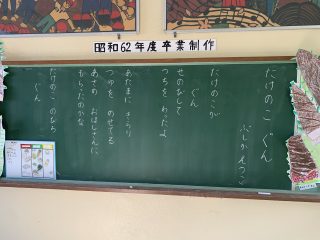 昭和62年度卒業制作
たけのこ ぐん
ぶしか えつこ
たけのこが
ぐん
せのびして
つちを わったよ
あたまに きらり
つゆを のせてる
あさの おほしさんに
もらったのかな
たけのこ のびろ
ぐん